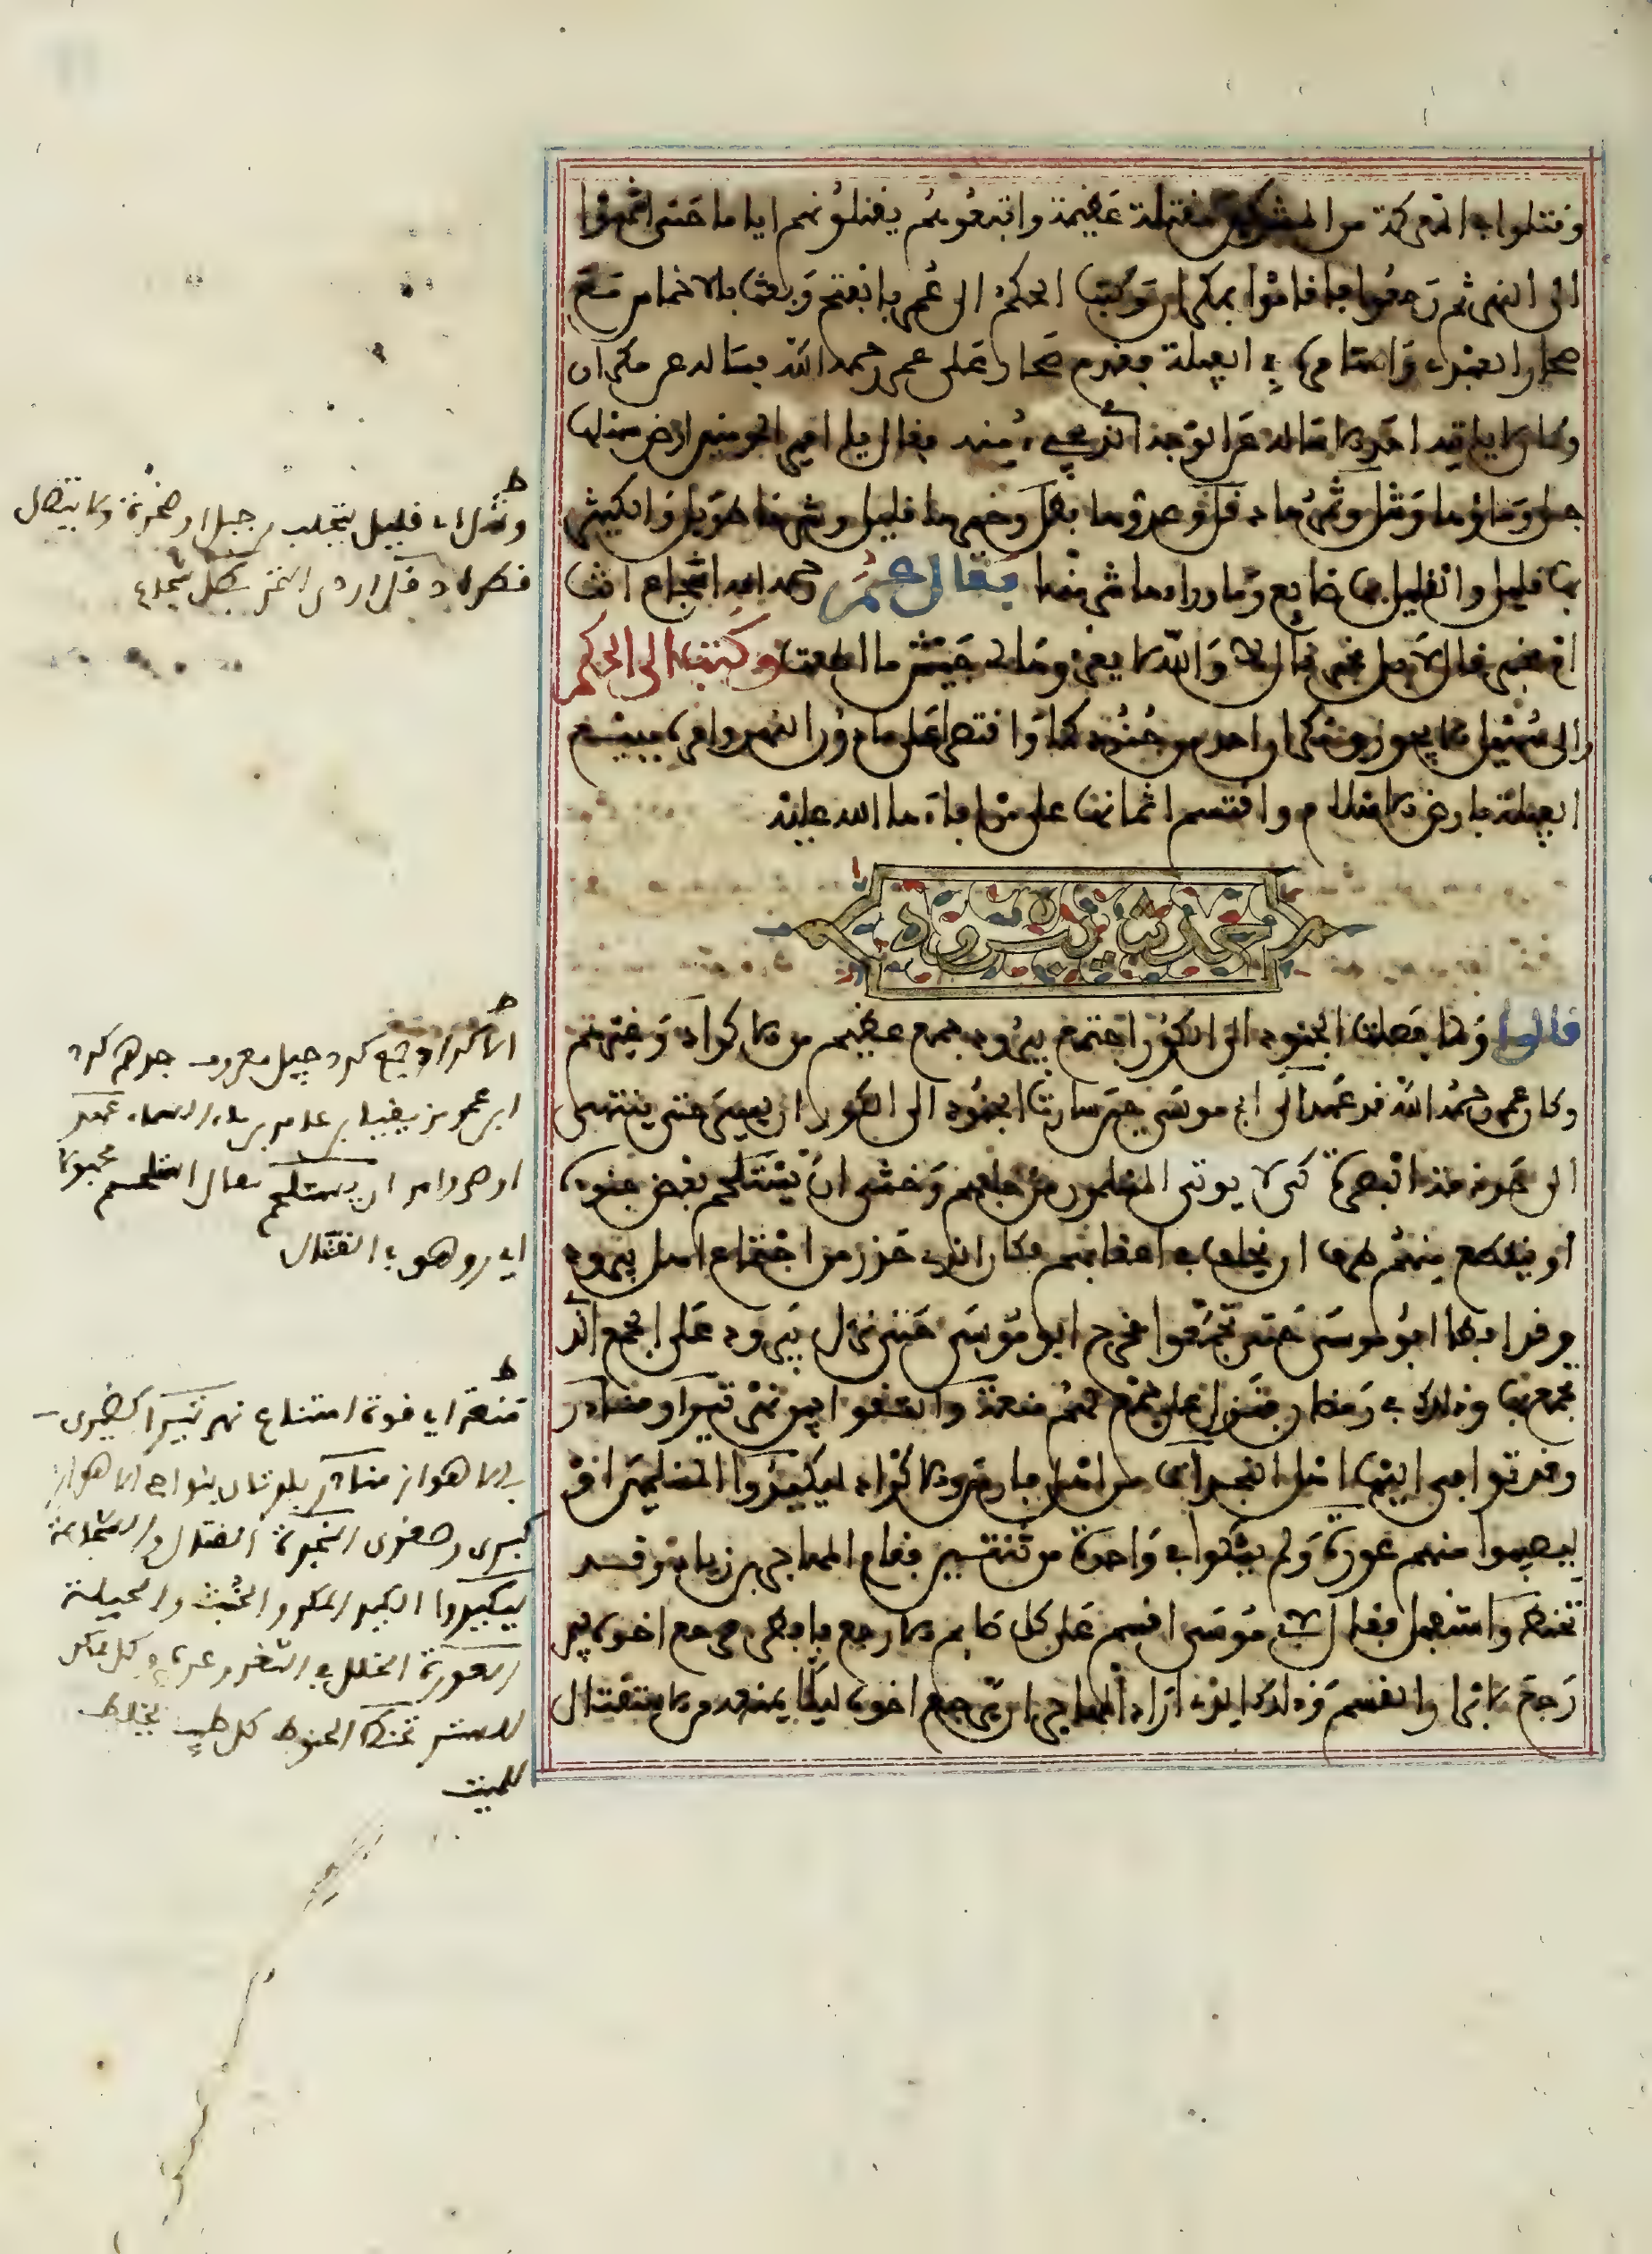 وقتلوا في المعركة من المشركين مقتلة عظيمة واتبعوهم يقتلونهم اياما حتى انتهوا
الى النهر ثم رجعوا فاقاموا بمكران وكتب الحكم الى عمر بالفتح وبعث بالاخماس مع
صحار العبدي وامتامره في الفيلة فقدم صحار على عمر رحمه الله فساله عن مكران
وكان لا ياتيه احد الا ساله عن الوجه الذي يجيء منه فقال يا امير المومنين ارض سهلها
جبل وماؤها وشل وثمرها دقل وعدوها بطل وخيرها قليل وشرها طويل والكثير
بها قليل والقليل بها ضايع وما وراءها شر منها فقال عمر رحمه الله اسجاع انت
ام مخبر قال لا بل مخبر قال لا والله لا يغزوها لي جيش ما اطعت وكتب الى الحكم
والى سهيل الا يجوزن مكران احد من جنودكما واقتصرا على ما دون النهر وامره ببيع
الفيلة بارض الاسلام واقتسم اثمانها على من افاءها الله عليه
حديث بيروذ
قالوا ولما فصلت الجنود الى الكور اجتمع ببيروذ جمع عظيم من الاكراد وغيرهم
وكان عمر رحمه الله قد عهد الى ابي موسى حين سارت الجنود الى الكور ان يسير حتى ينتهي
الى ذمة البصرة كي لا يوتى المسلمون من خلفهم وخشي ان يستلحم بعض جنوده
او ينقطع منهم طرف او يخلف في اعقابهم فكان الذي حذر من اجتماع اهل بيروذ
وقد ابطا ابو موسى حتى تجمعوا فخرج ابو موسى حتى نزل ببيروذ على الجمع الذي
تجمع بها وذلك في رمضان فنزل على جمع لهم منعة والتقوا بين نهر تيرا ومناذر
وقد توافى اليها اهل النجدات من اهل فارس والاكراد ليكيدوا المسلمين او
ليصيبوا منهم عورة ولم يشكوا في واحدة من ثنتين فقام المهاجر بن زياد وقد
تحنط واستقتل فقال لابي موسى اقسم على كل صايم الا رجع فافطر فرجع اخوه فيمن
رجع لابرار القسم وذلك الذي اراد المهاجر ان يرجع اخوه ليلا يمنعه من الاستقتال
وشل اي قليل يتحلب من جبل او صخرة ولا يتصل
قطره دقل اردى التمر بطل شجاع
الاكراد جمع كرد جيل معروف جدهم كرد
ابن عمرو مزيقيا بن عامر بن ماء السماء
ان يستلحم يقال استلحم مجهولا
اي روهق في القتال
منعة اي قوة امتناع نهر تيرا كضيزى
بالاهواز مناذر بلدتان بنواحي الاهواز
كبرى وصغرى النجدة القتال والشجاعة
ليكيدوا الكيد المكر والخبث والحيلة
العورة الخلل في الثغر وغيره وكل مكمن
للستر تحنط الحنوط كل طيب يخلط
للميت